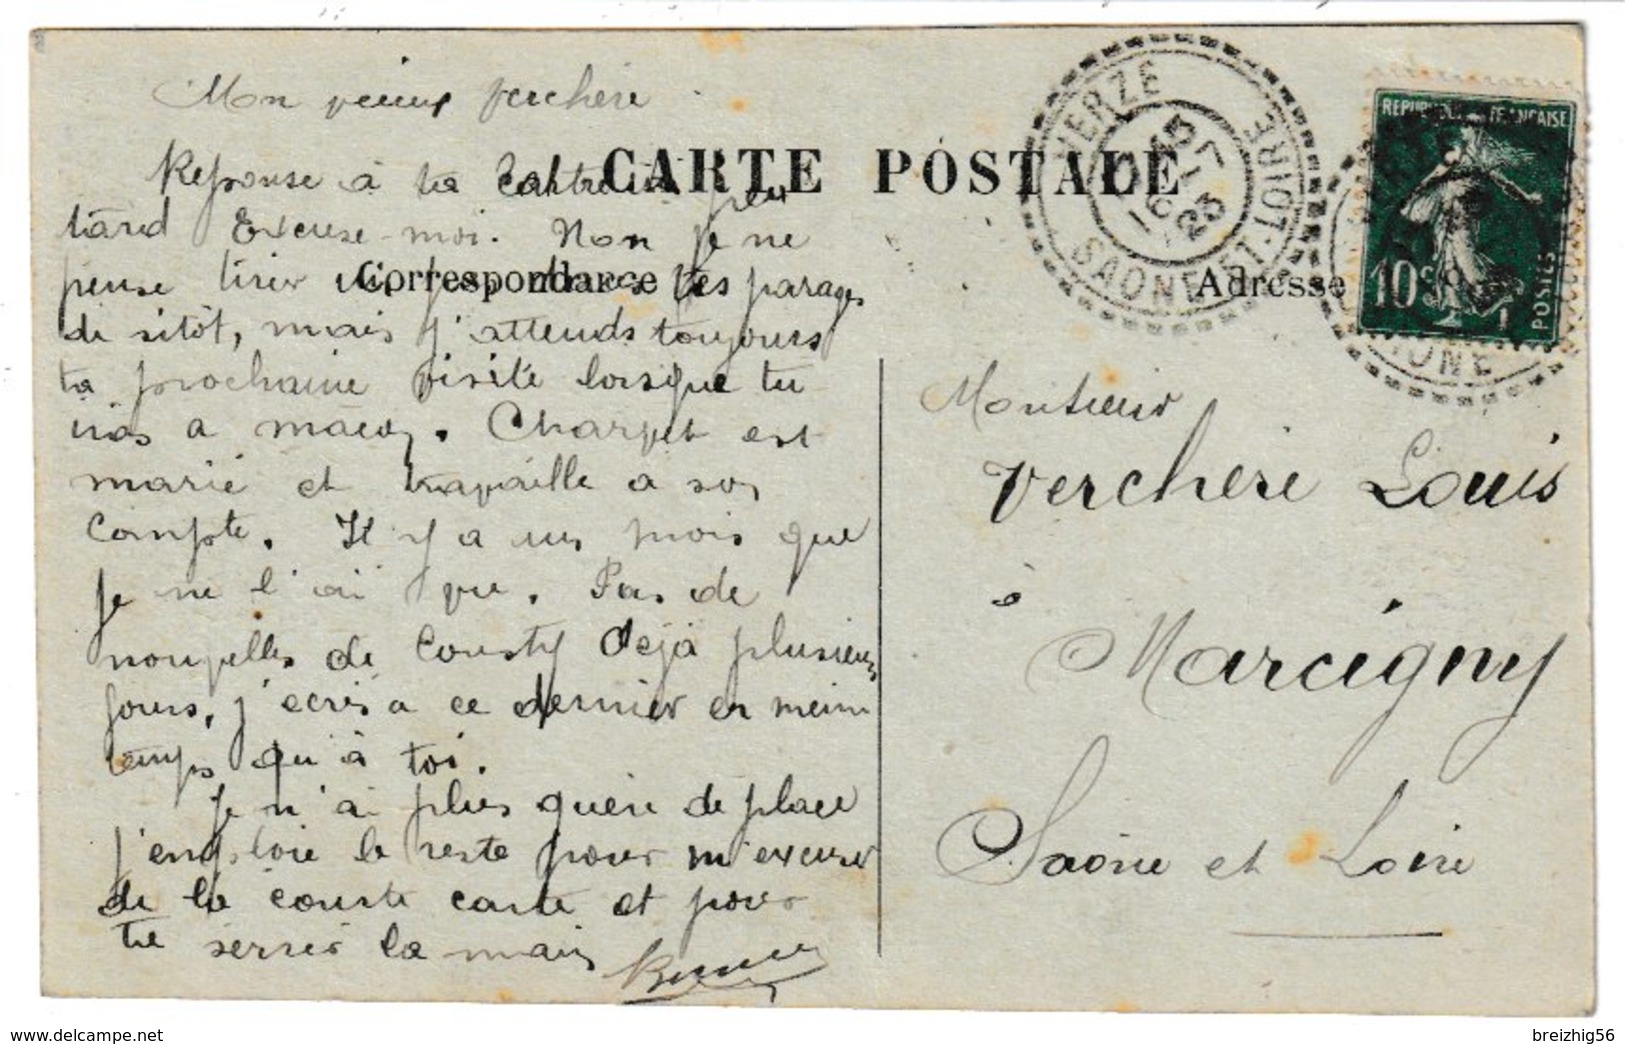 Mon vieux Verchère
CARTE POSTALE
Réponse à ta carte un peu
tard Excuse-moi. Non je ne
pense tirer vers les parages
Correspondance
de sitôt, mais j'attends toujours
ta prochaine visite lorsque tu
iras a macon. Charvet est
marié et travaille a son
compte. Il y a un mois que
je ne l'ai vu. Pas de
nouvelles de Cousty deja plusieurs
jours, j'ecris a ce dernier en meme
temps qu'à toi.
Je n'ai plus guère de place
j'emploie le reste pour m'excuser
de la courte carte et pour
te serrer la main
VERZE
SAONE-ET-LOIRE
15
23
REPUBLIQUE FRANÇAISE
10c
POSTES
Adresse
Monsieur
Verchere Louis
à
Marcigny
Saône et Loire
www.delcampe.net
breizhig56